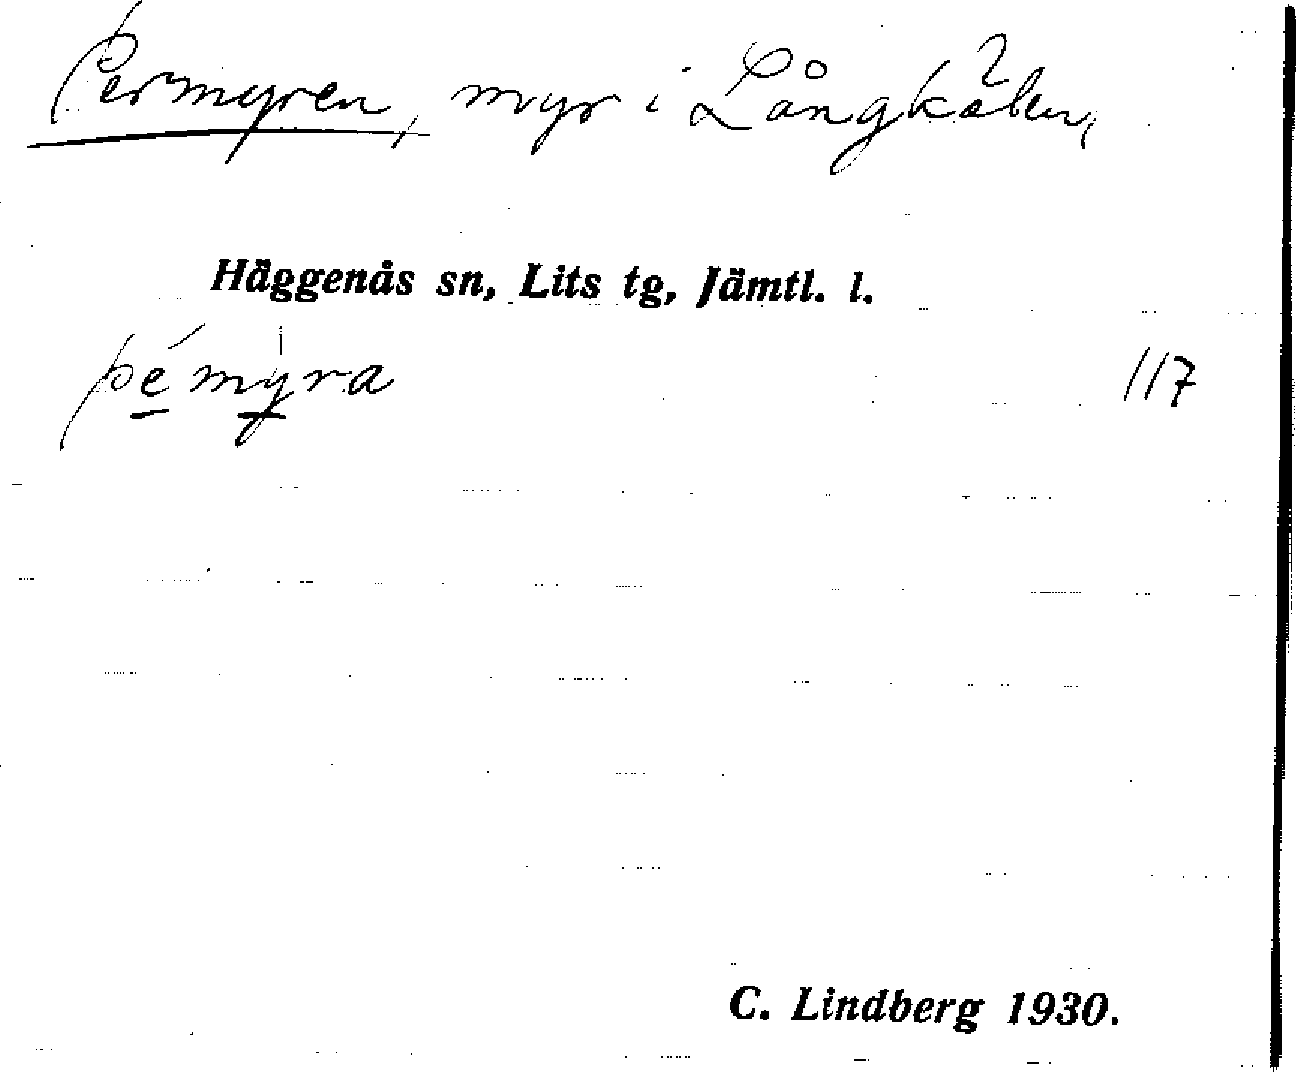 Permyren, myr i Långkälen,
Häggenås sn, Lits tg, Jämtl. l.
pémỳra
117
C. Lindberg 1930.